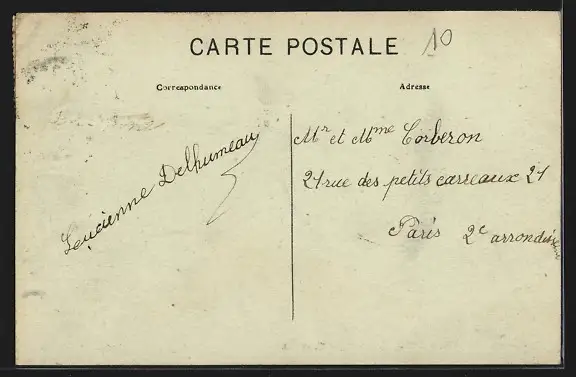 CARTE POSTALE
10
Correspondance
Adresse
Lucienne Delhumeau
Mr et Mme Corberon
21 rue des petits carreaux 21
Paris 2e arrondis